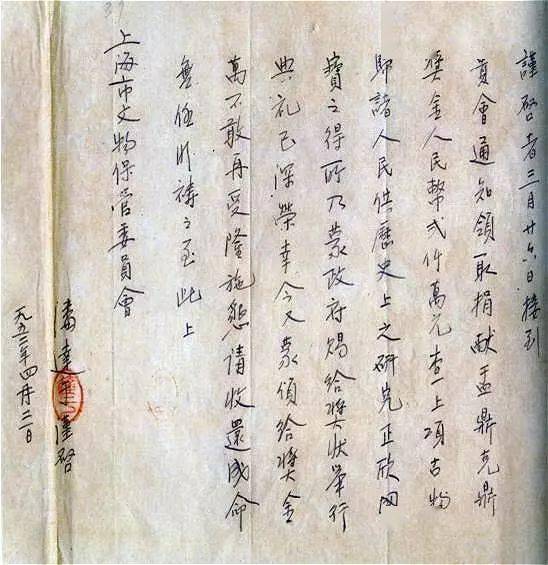 謹啓者三月廿六日接到
貴會通知領取捐献盂鼎克鼎
奬金人民幣弍仟萬元查上項古物
歸諸人民供歷史上之研究正欣国
寶之得所乃蒙政府賜給奬狀舉行
典礼已深榮幸今又蒙頒給奬金
萬不敢再受隆施懇請收還成命
無任叩禱之至此上
上海市文物保管委員會
潘達于謹啓
一九五二年四月二日